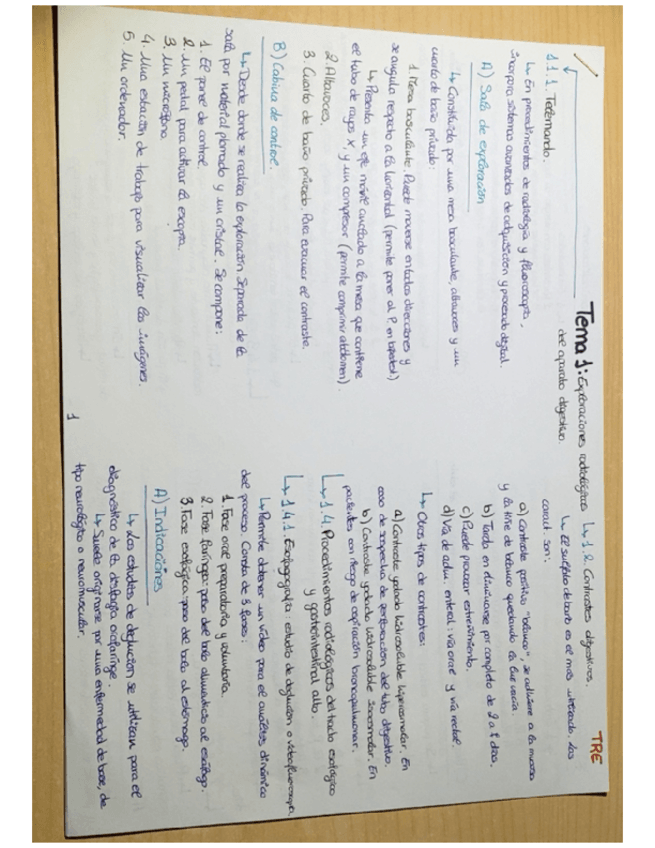 TRE
Tema 1: Exploraciones radiológicas
del aparato digestivo.
1.1.1. Telemando.
↳ En procedimientos de radiología y fluoroscopia,
incorpora sistemas avanzados de adquisición y procesado digital.
A) Sala de exploración
↳ Constituida por una mesa basculante, altavoces y un
cuarto de baño privado:
1. Mesa basculante. Puede moverse en todas direcciones y
se angula respecto a la horizontal (permite poner al P. en bipedest)
↳ Presenta un eje móvil anclado a la mesa que contiene
el tubo de rayos X, y un compresor (permite comprimir abdomen).
2. Altavoces.
3. Cuarto de baño privado. Para evacuar el contraste.
B) Cabina de control.
↳ Desde donde se realiza la exploración separada de la
sala por material plomado y un cristal. Se compone:
1. El panel de control.
2. Un pedal para activar la escopia.
3. Un micrófono.
4. Una estación de trabajo para visualizar las imágenes.
5. Un ordenador.
1
↳ 1.2. Contrastes digestivos.
↳ El sulfato de bario es el más utilizado. Las
caract. son:
a) Contraste positivo "blanco", se adhiere a la mucosa
y la tiñe de blanco quedando la luz vacía.
b) Tarda en eliminarse por completo de 2 a días.
c) Puede provocar estreñimiento.
d) Vía de adm. enteral: vía oral y vía rectal.
↳ Otros tipos de contrastes:
a) Contraste yodado hidrosoluble hiperosmolar. En
caso de sospecha de perforación del tubo digestivo.
b) Contraste yodado hidrosoluble isoosmolar. En
pacientes con riesgo de aspiración broncopulmonar.
↳ 1.4. Procedimientos radiológicos del tracto esofágico
y gastrointestinal alto.
↳ 1.4.1. Esofagografía: estudio de deglución o videofluoroscopia.
↳ Permite obtener un vídeo para el análisis dinámico
del proceso. Consta de 3 fases:
1. Fase oral preparatoria y voluntaria.
2. Fase faríngea: paso del bolo alimenticio al esófago.
3. Fase esofágica: paso del bolo al estómago.
A) Indicaciones
↳ Los estudios de deglución se utilizan para el
diagnóstico de la disfagia orofaríngea.
↳ Suele originarse por una enfermedad de base, de
tipo neurológico o neuromuscular.